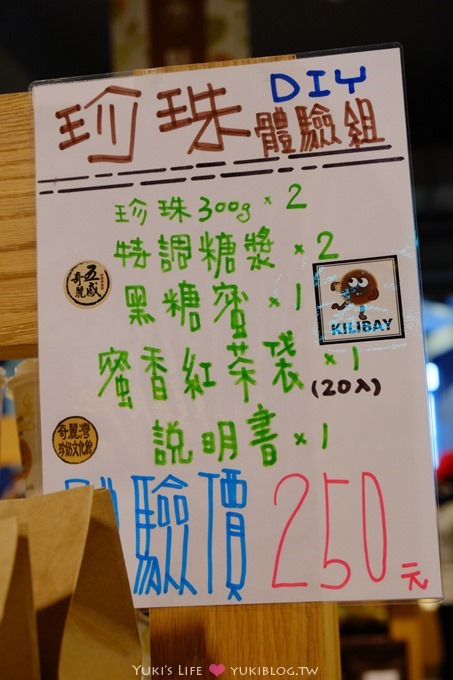 DIY
珍珠體驗組
珍珠300g×2
特調糖漿×2
五感
奇麗
黑糖蜜×1
KILIBAY
蜜香紅茶袋×1
(20入)
奇麗灣
珍奶文化館
說明書×1
驗價 250元
YUKI'S LIFE ♥ YUKIBLOG.TW